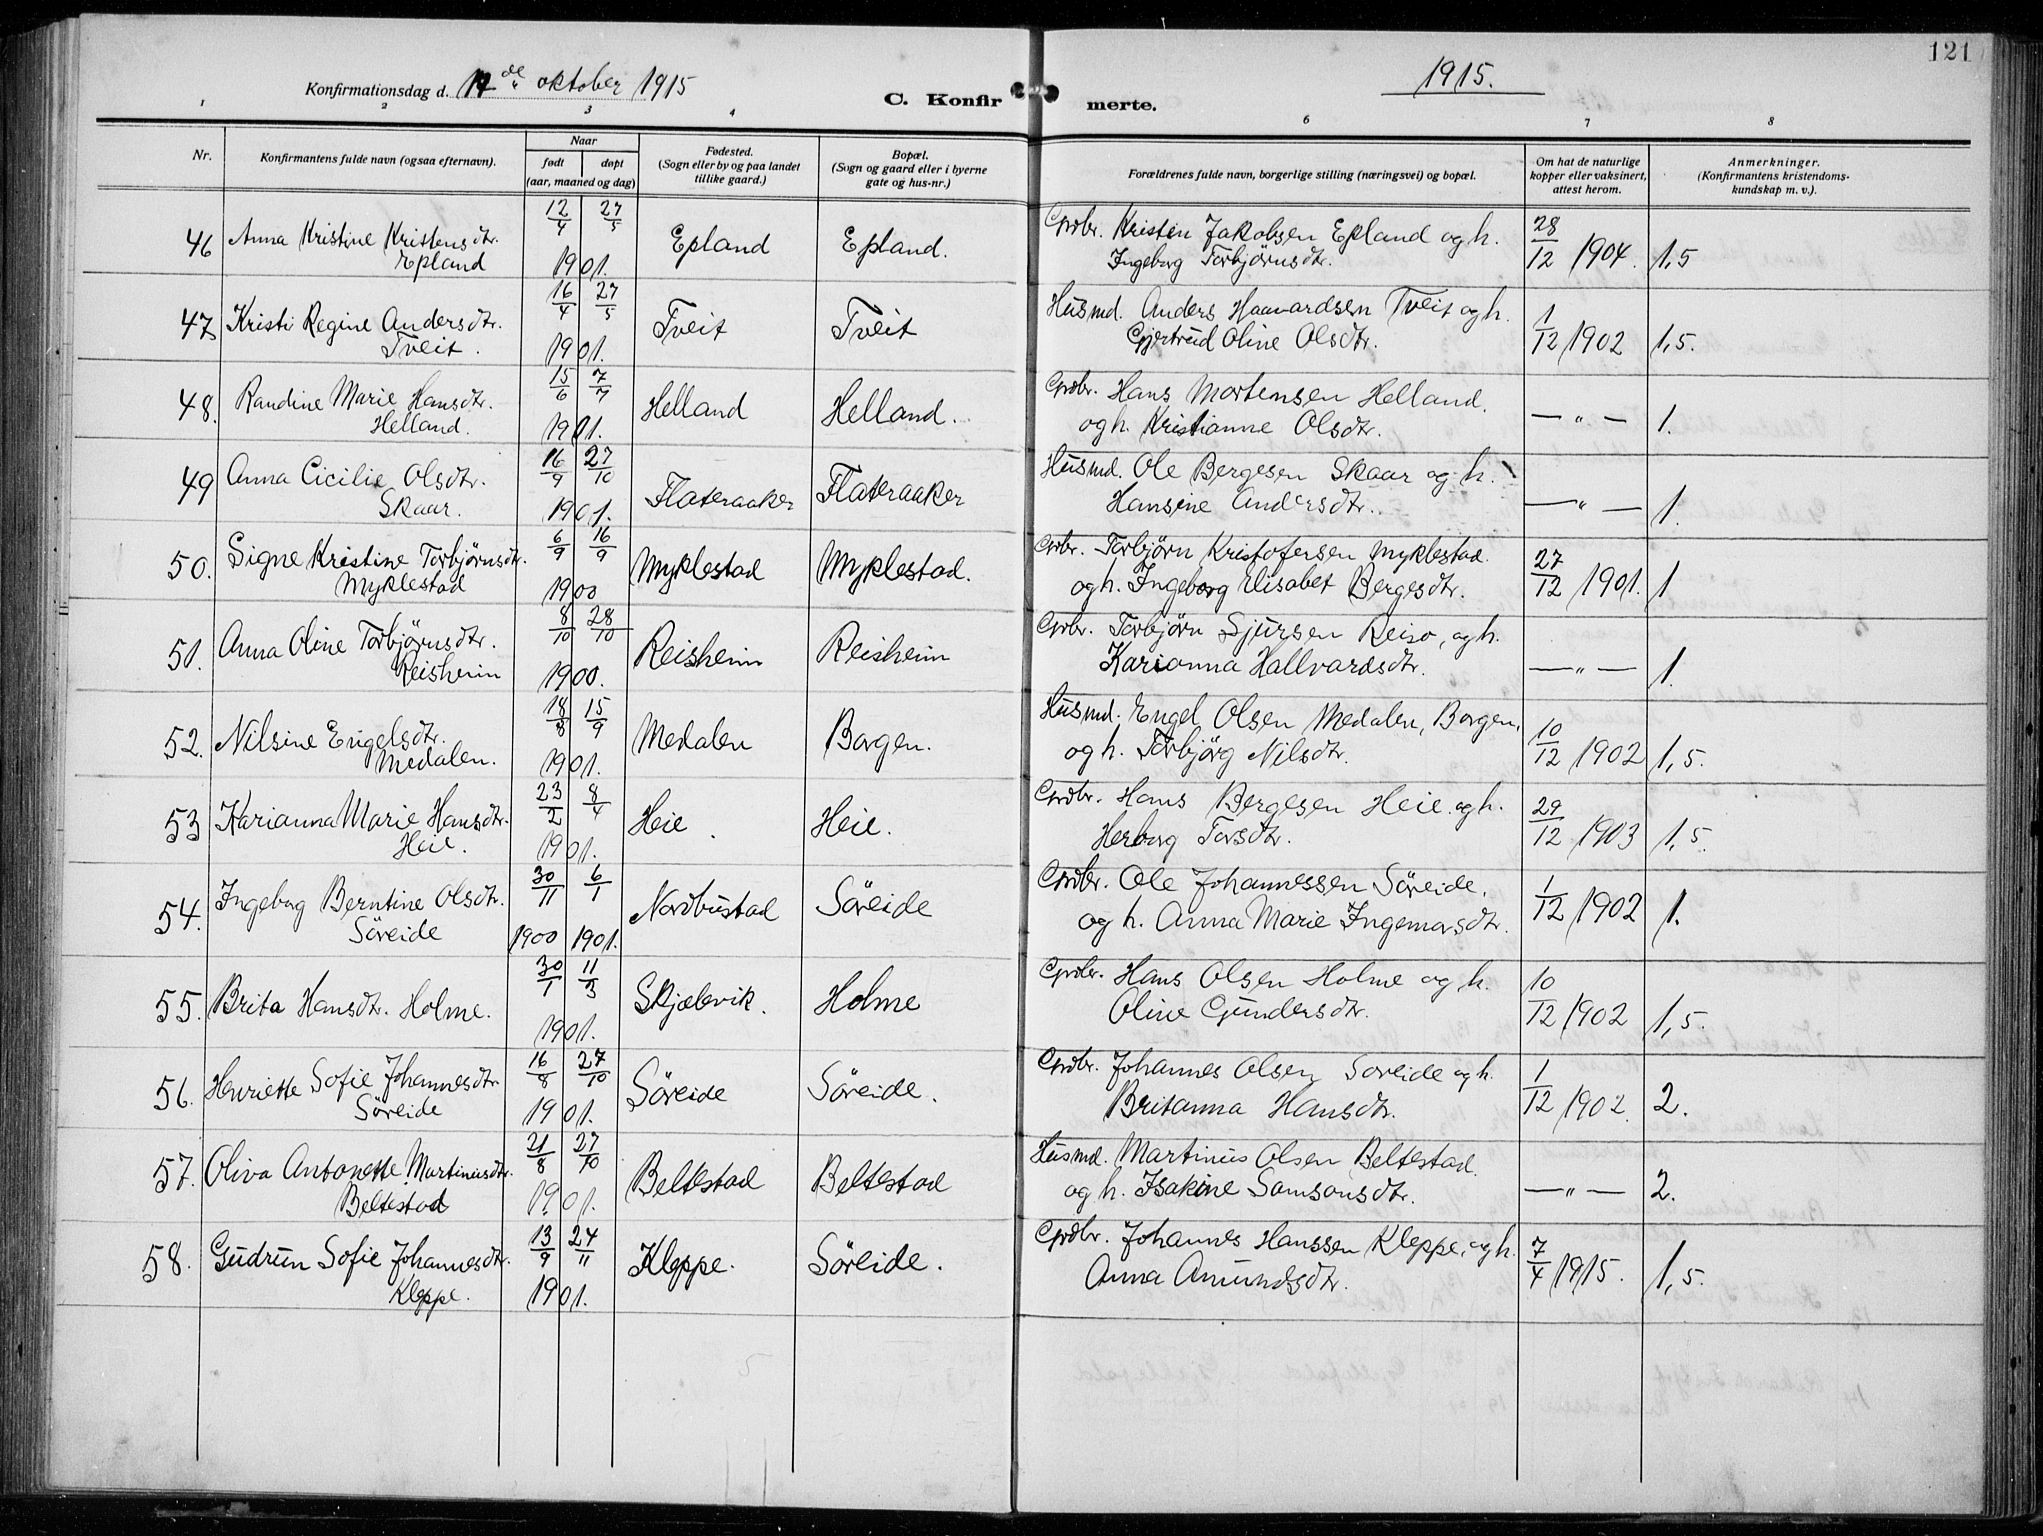 121
Konfirmationsdag d. 17 de oktober 1915
1915.
C. Konfir merte.
1 2 3 4 6 7 8
Nr.
Konfirmantens fulde navn (ogsaa efternavn).
Naar
født døpt
(aar, maaned og dag)
Fødested.
(Sogn eller by og paa landet
tillike gaard.)
Bopæl.
(Sogn og gaard eller i byerne
gate og hus-nr.)
Forældrenes fulde navn, borgerlige stilling (næringsvei) og bopæl.
Om hat de naturlige
kopper eller vaksinert,
attest herom.
Anmerkninger.
(Konfirmantens kristendoms-
kundskap m. v.).
46 Anna Kristine Kristensdtr. 12/4 27/5 Epland Epland. Grdbr. Kristen Jakobsen Epland og h. 28/12 1904. 1,5
Epland 1901. Ingeborg Torbjørnsdtr.
47 Kristi Regine Andersdtr. 16/4 27/5 Tveit Tveit Husmd. Anders Haavardsen Tveit og h. 1/12 1902 1,5.
Tveit. 1901. Gjertrud Oline Olsdtr.
48. Randine Marie Hansdtr. 15/6 7/7 Helland Helland. Grdbr. Hans Mortensen Helland. — " — 1.
Helland. 1901. og h. Kristianne Olsdtr.
49 Anna Cicilie Olsdtr. 16/9 27/10 Flateraaker Flateraaker Husmd. Ole Bergesen Skaar og h. — " — 1.
Skaar. 1901. Hansine Andersdtr.
50. Signe Kristine Torbjörnsdtr. 6/9 16/9 Myklestad Myklestad. Grbr. Torbjörn Kristofersen Myklestad. 27/12 1901. 1
Myklestad 1900 og h. Ingeborg Elisabet Bergesdtr.
51. Anna Oline Torbjörnsdtr. 8/10 28/10 Reisheim Reisheim Grbr. Torbjörn Sjursen Reiso, og h. — " — 1.
Reisheim 1900. Karianna Hallvardsdtr.
52. Nilsine Engelsdtr. 18/8 15/9 Medalen Borgen. Husmd. Engel Olsen Medalen, Borgen, 10/12 1902 1,5.
Medalen. 1901. og h. Torbjörg Nilsdtr.
53 Karianna Marie Hansdtr. 23/2 8/4 Heie. Heie. Grdbr. Hans Bergesen Heie. og h. 29/12 1903 1,5.
Heie. 1901. Herborg Torsdtr.
54. Ingeborg Berntine Olsdtr. 30/11 6/1 Nordbustad Söreide Grdbr. Ole Johannessen Söreide. 1/12 1902 1.
Söreide 1900 1901. og h. Anna Marie Ingemarsdtr.
55. Brita Hansdtr. Holme. 30/1 11/3 Skjælevik. Holme Grdbr. Hans Olsen Holme og h. 10/12 1902 1,5.
1901. Oline Gundersdtr.
56. Henriette Sofie Johannesdtr. 16/8 27/10 Söreide Söreide. Grdbr. Johannes Olsen Soreide og h. 1/12 1902. 2.
Söreide 1901. Britanna Hansdtr.
57. Oliva Antonette Martinusdtr. 21/8 27/10 Beltestad Beltestad Husmd. Martinus Olsen Beltestad. — " — 2.
Beltestad 1901. og h. Isakine Samsonsdtr.
58. Gudrun Sofie Johannesdtr. 13/9 24/11 Kleppe. Söreide. Grdbr. Johannes Hanssen Kleppe, og h. 7/4 1915. 1,5.
Kleppe. 1901. Anna Amundsdtr.